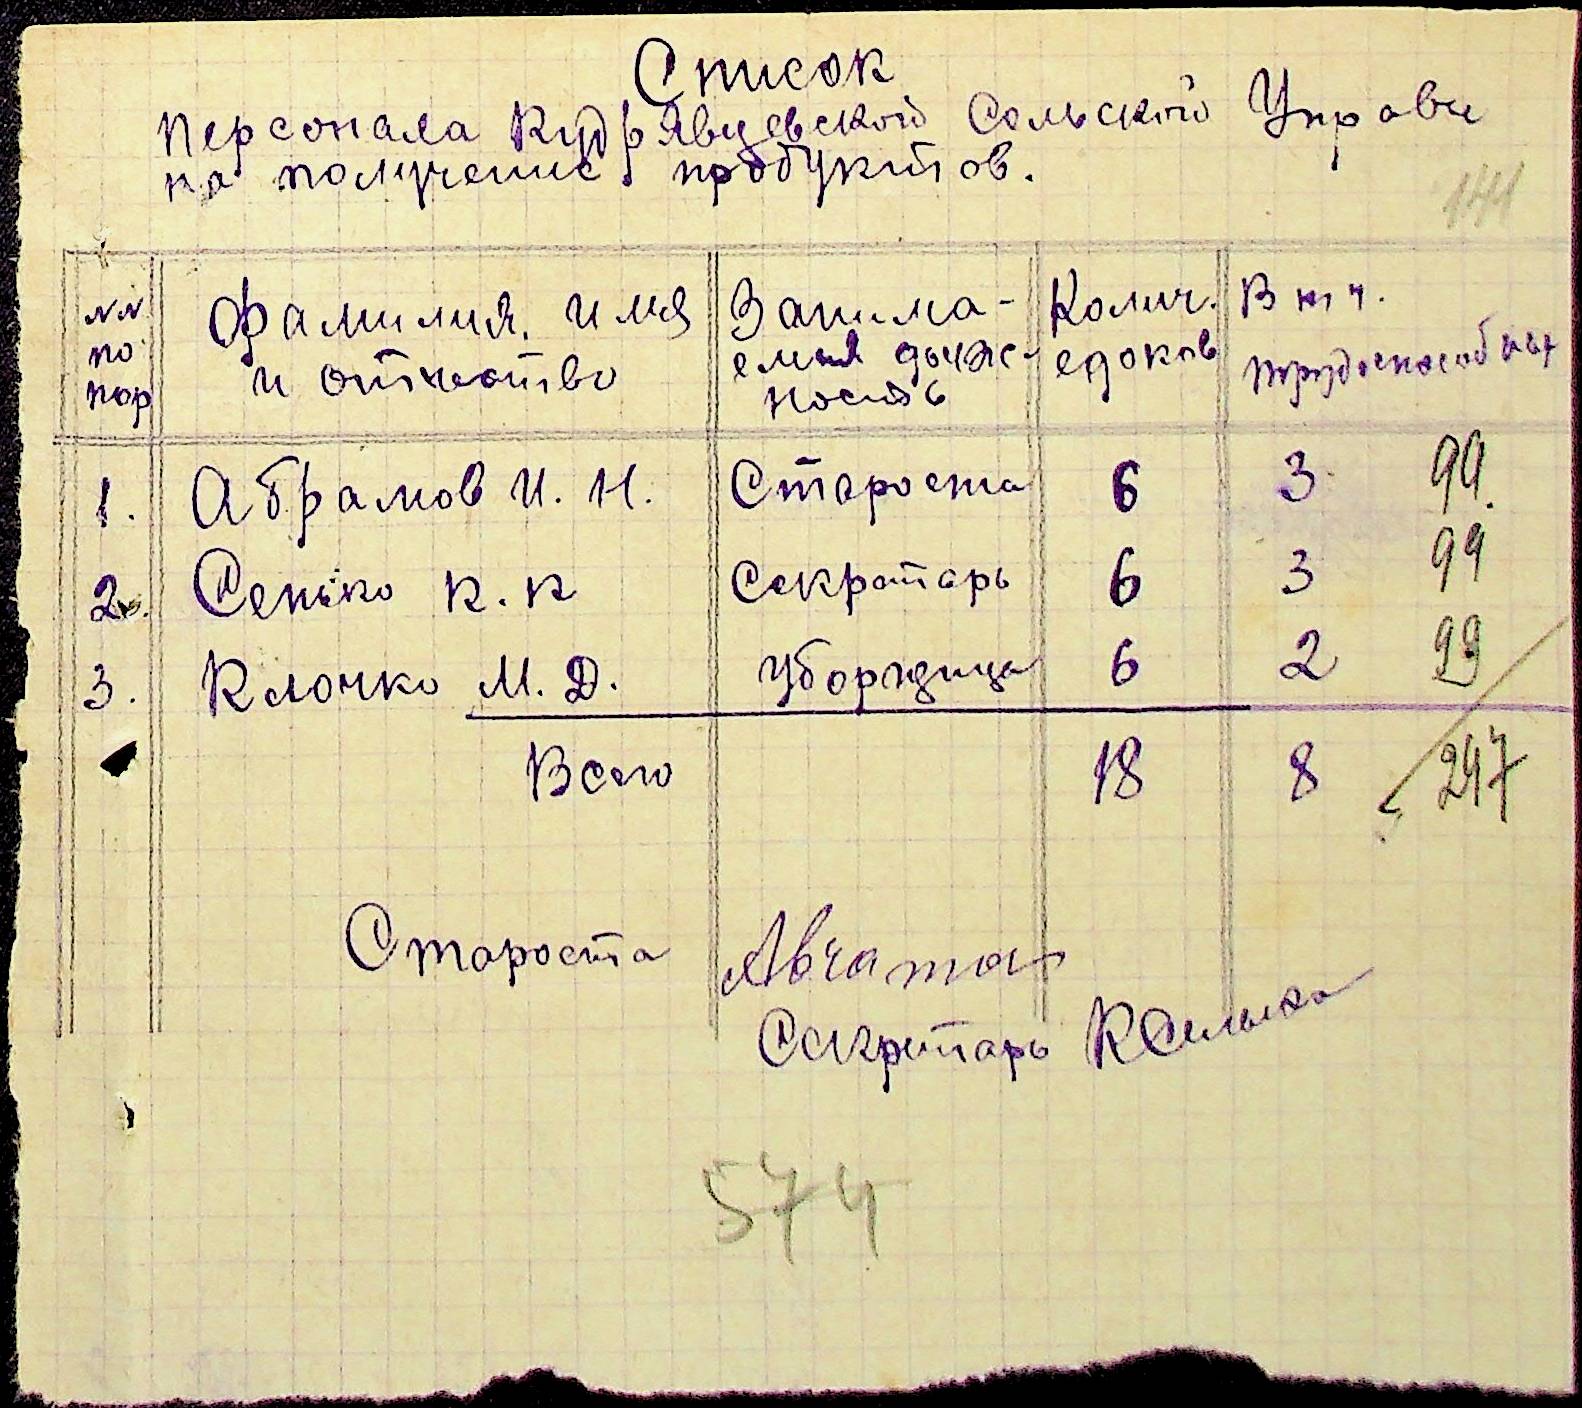 Список
персонала Кудрявцевской Сельской Управы
на получение продуктов.
141
NN по пор
Фамилия, имя и отчество
Занима-емая должность
Колич. едоков
В т ч. трудоспособных
1. Абрамов И. Н. Староста 6 3 99.
2. Сенько К. К Секретарь 6 3 99
3. Клочко М. Д. Уборщица 6 2 99
Всего 18 8 247
Староста
Секретарь КСенько
574